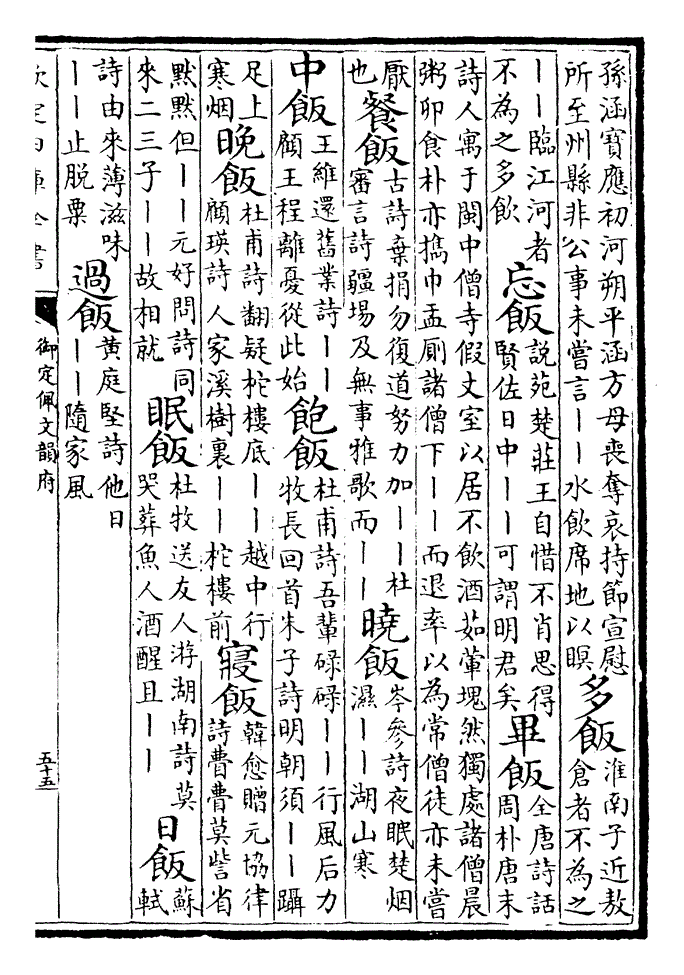 孫涵寶應初河朔平涵方母喪奪哀持節宣慰
所至州縣非公事未嘗言丨丨水飲席地以瞑
多飯
淮南子近敖
倉者不為之
丨丨臨江河者
不為之多飲
忘飯
說苑楚莊王自惜不肖思得
賢佐日中丨丨可謂明君矣
畢飯
全唐詩話
周朴唐末
詩人寓于閩中僧寺假丈室以居不飲酒茹葷塊然獨處諸僧晨
粥卯食朴亦擕巾盂厠諸僧下丨丨而退率以為常僧徒亦未嘗
厭
也
餐飯
古詩棄捐勿復道努力加丨丨杜
審言詩疆埸及無事雅歌而丨丨
曉飯
岑參詩夜眠楚烟
濕丨丨湖山寒
中飯
王維還舊業詩丨丨
顧王程離憂從此始
飽飯
杜甫詩吾輩碌碌丨丨行風后力
牧長回首朱子詩明朝須丨丨躡
足上
寒烟
晚飯
杜甫詩翻疑柁樓底丨丨越中行
顧瑛詩人家溪樹裏丨丨柁樓前
寢飯
韓愈贈元協律
詩費費莫訾省
默默但丨丨元好問詩同
來二三子丨丨故相就
眠飯
杜牧送友人游湖南詩莫
哭葬魚人酒醒且丨丨
日飯
蘇
軾
詩由來薄滋味
丨丨止脱粟
過飯
黄庭堅詩他日
丨丨隨家風
欽定四庫全書
御定佩文韻府
五十五